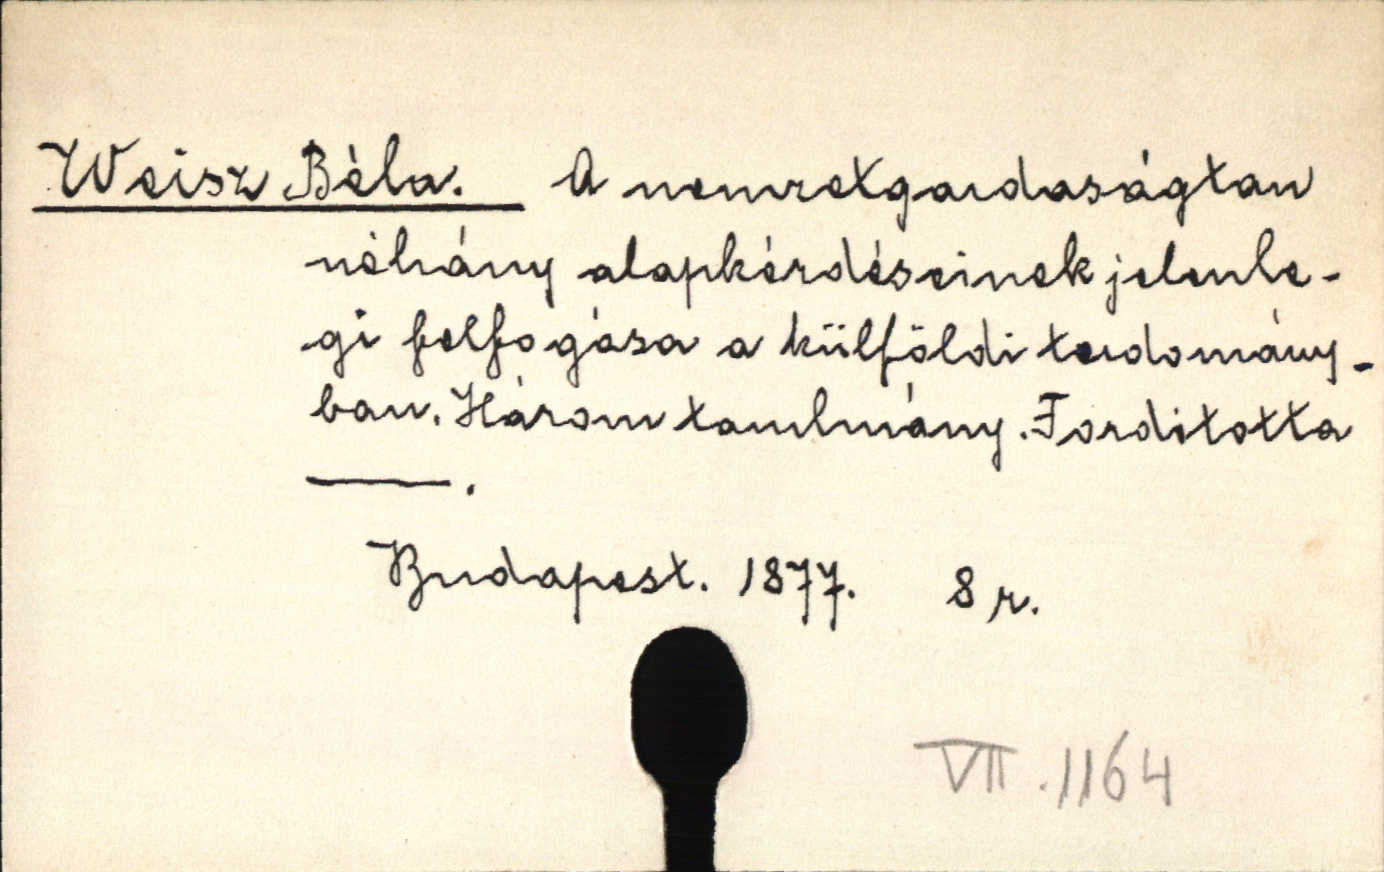 Weisz Béla. A nemzetgazdaságtan
néhány alapkérdéseinek jelenle-
gi felfogása a külföldi tudomány-
ban. Három tanulmány. Fordította
———.
Budapest. 1877. 8 r.
VII. 1164